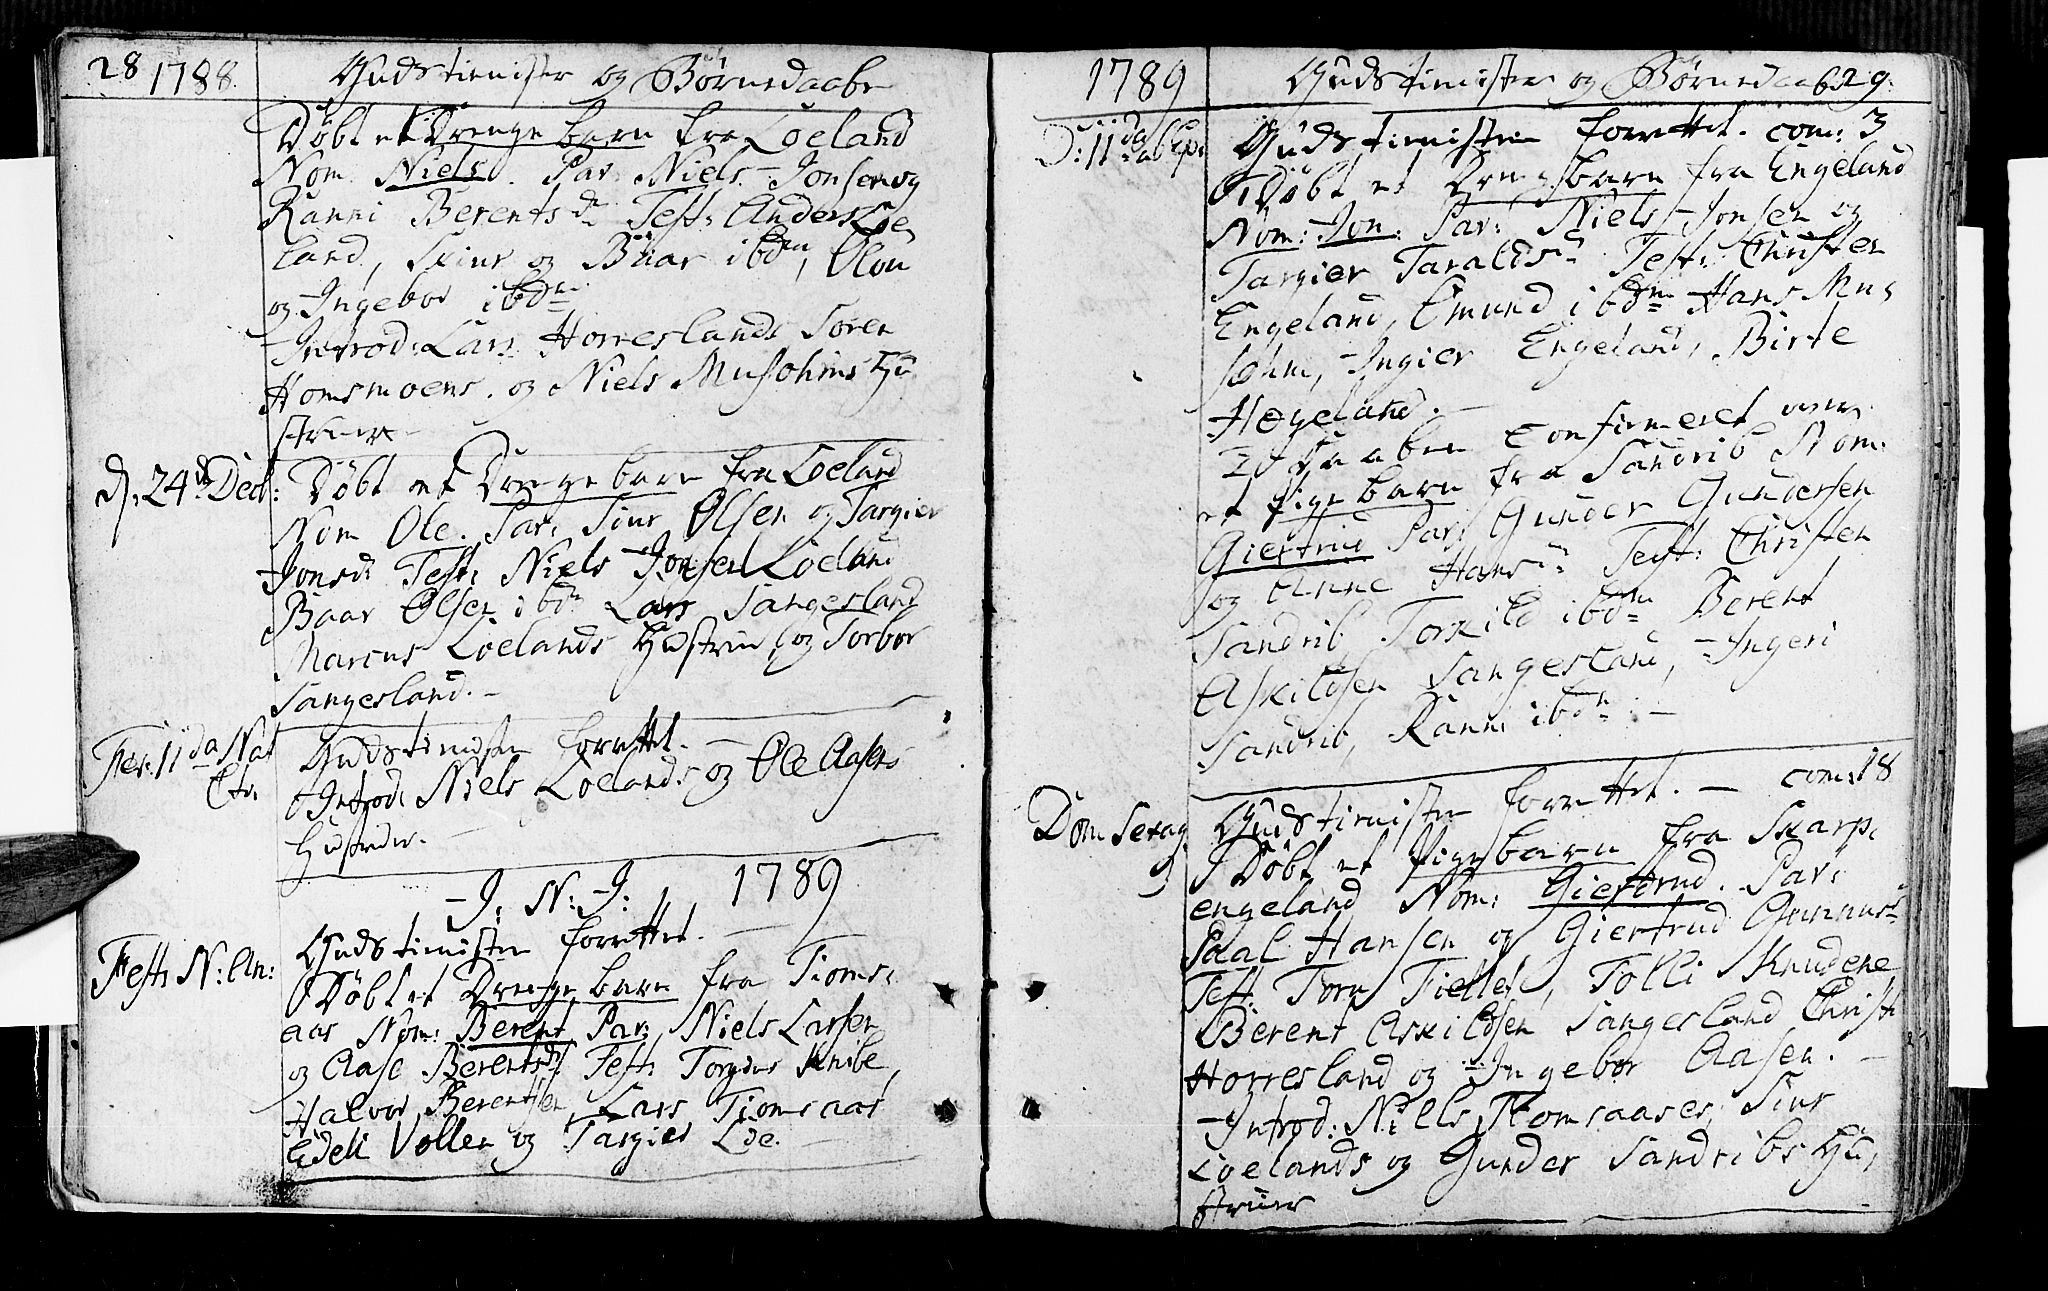 28 1788. Gudstienister og Børnedaabe
Døbt et Drenge barn fra Loeland
Nom Niels. Par: Niels Jonsen og
Ranni Berentsd: Test: Anders Loe
land, Siur og Baar ibdm, Olou
og Ingebor ibdm
Introd: Lars Horreslands Søren
Homsmoens og Niels Musohms Hu
struer
d. 24de Decb: Døbt et Drenge barn fra Loeland
Nom Ole. Par: Siur Olsen og Targier
Jonsd: Test: Niels Jonsen Loeland
Baar Olsen ibdm Lars Sangesland
Marcus Loelands Hustrue, og Torbor
Sangesland.
Fer: II da Nat Gudstienisten forrettet.
Chr. Introd: Niels Loelands og Ole Aasens
Hustruer.
J: N: J: 1789
Fest: N: An: Gudstienisten forrettet.
Døbt et Drenge barn fra Tioms:
aas Nom: Berent Par: Niels Larsen
og Aase Berentsd: Test: Torgius Knibe,
Halvor Berentsen, Lars Tiomsaas
Edeli Vollen og Targier Loe.
1789 Gudstienister og Børnedaab 29.
D: II da Ep: Gudstienisten forrettet. com: 3
Døbt et Drengebarn fra Engeland
Nom: Jon: Par: Niels Jonsen og
Targier Taraldsd: Test: Christen
Engeland, Emund ibdm Hans Mus
ohm, Ingier Engeland, Birte
Høgeland.
I Daaben Confirmeret
et Pige barn fra Sandrib Nom:
Giertrud Par: Gunder Gundersen
og Anne Hansd: Test: Christen
Sandrib, Torkild ibdm Berent
Askildsen Sangesland, Ingeri
Sandrib, Ranni ibdm
Dom Sexag. Gudstienisten forrettet. com: 18
Døbt et Pigebarn fra Skarp,
engeland Nom: Giertrud. Par:
Paal Hansen og Giertrud Gunnusd:
Test: Torn Fielles, Tolli Knudene
Berent Askildsen Sangesland Christ
Horresland og Ingebor Aasen.
Introd: Niels Tiomsaases, Siur
Loelands og Gunder Sandribs Hu,
struer